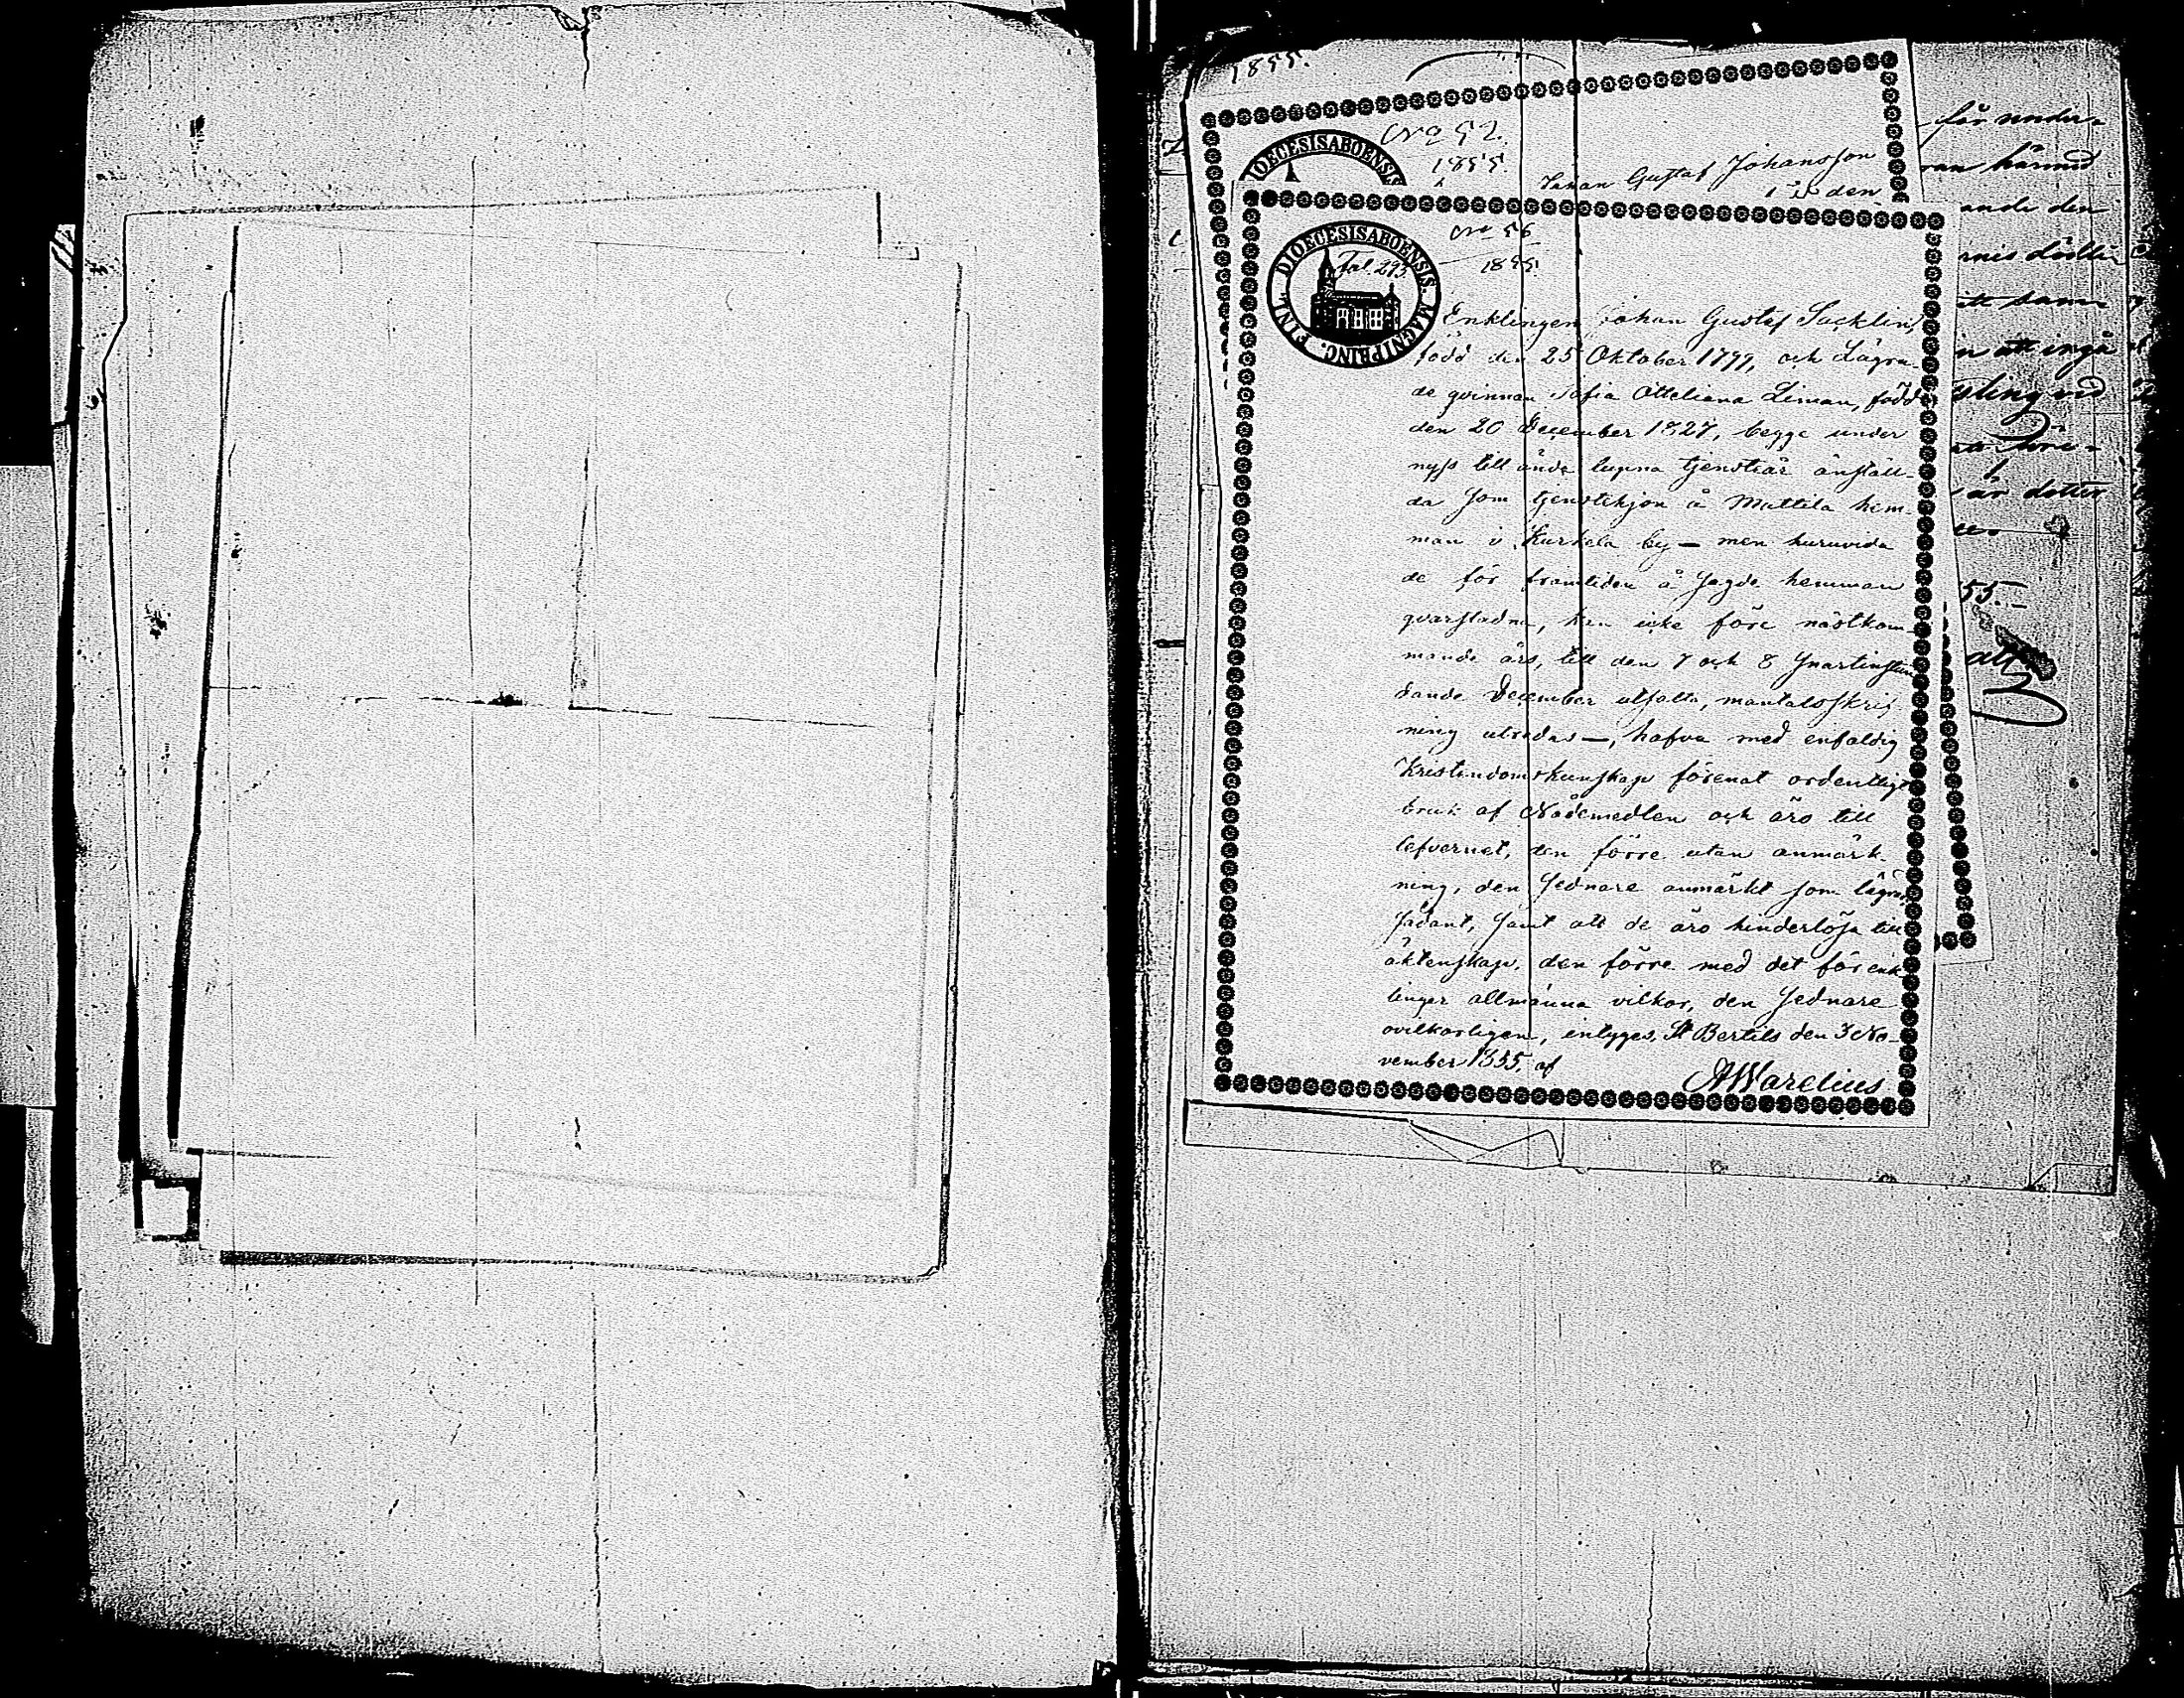 1855.
No 52.
1855.
DIOECESIS ABOENSIS
Johan Gustaf Johansson
den
för under-
härmed
ande den
att ingå
dotter
55.
No 56
1855.
DIOECESIS ABOENSIS. MAGNI PRINC. FINL.
Fol. 293
Enklingen Johan Gustaf Sacklin,
född den 25 Oktober 1799, och Lägra-
de qvinnan Sofia Otteliana Liman, född
den 20 December 1827, begge under
nyss till ända lupna tjenstår anställ-
da som tjenstehjon å Mattila hem-
man i Kurkela by — men huruvida
de för framtiden å sagde hemman
qvarstadna, kan icke före nästkom-
mande års, till den 7 och 8 instun-
dande December utsatta, mantalsskrif-
ning utredas —, hafva med enfaldig
Kristendomskunskap förenat ordentligt
bruk af Nådemedlen och äro till
lefvernet, den förre utan anmärk-
ning, den sednare anmärkt som lägra,
sådant, samt att de äro hinderlösa till
äktenskap, den förre med det för enk-
lingar allmänna vilkor, den sednare
ovilkorligen, intygas. St Bertils den 3 No-
vember 1855, af
AWarelius